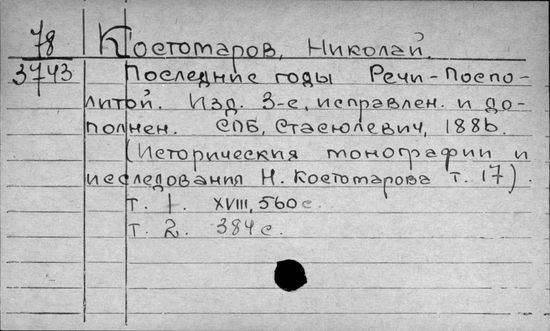 78 Костомаров, Николай.
3743 Последние годы Речи-Поспо-
литой. Изд. 3-е, исправлен. и до-
полнен. СПБ, Стасюлевич, 1886.
(Исторические монографии и
исследования Н. Костомарова т. 17).
т. 1. XVIII, 560 с.
т. 2. 384 с.